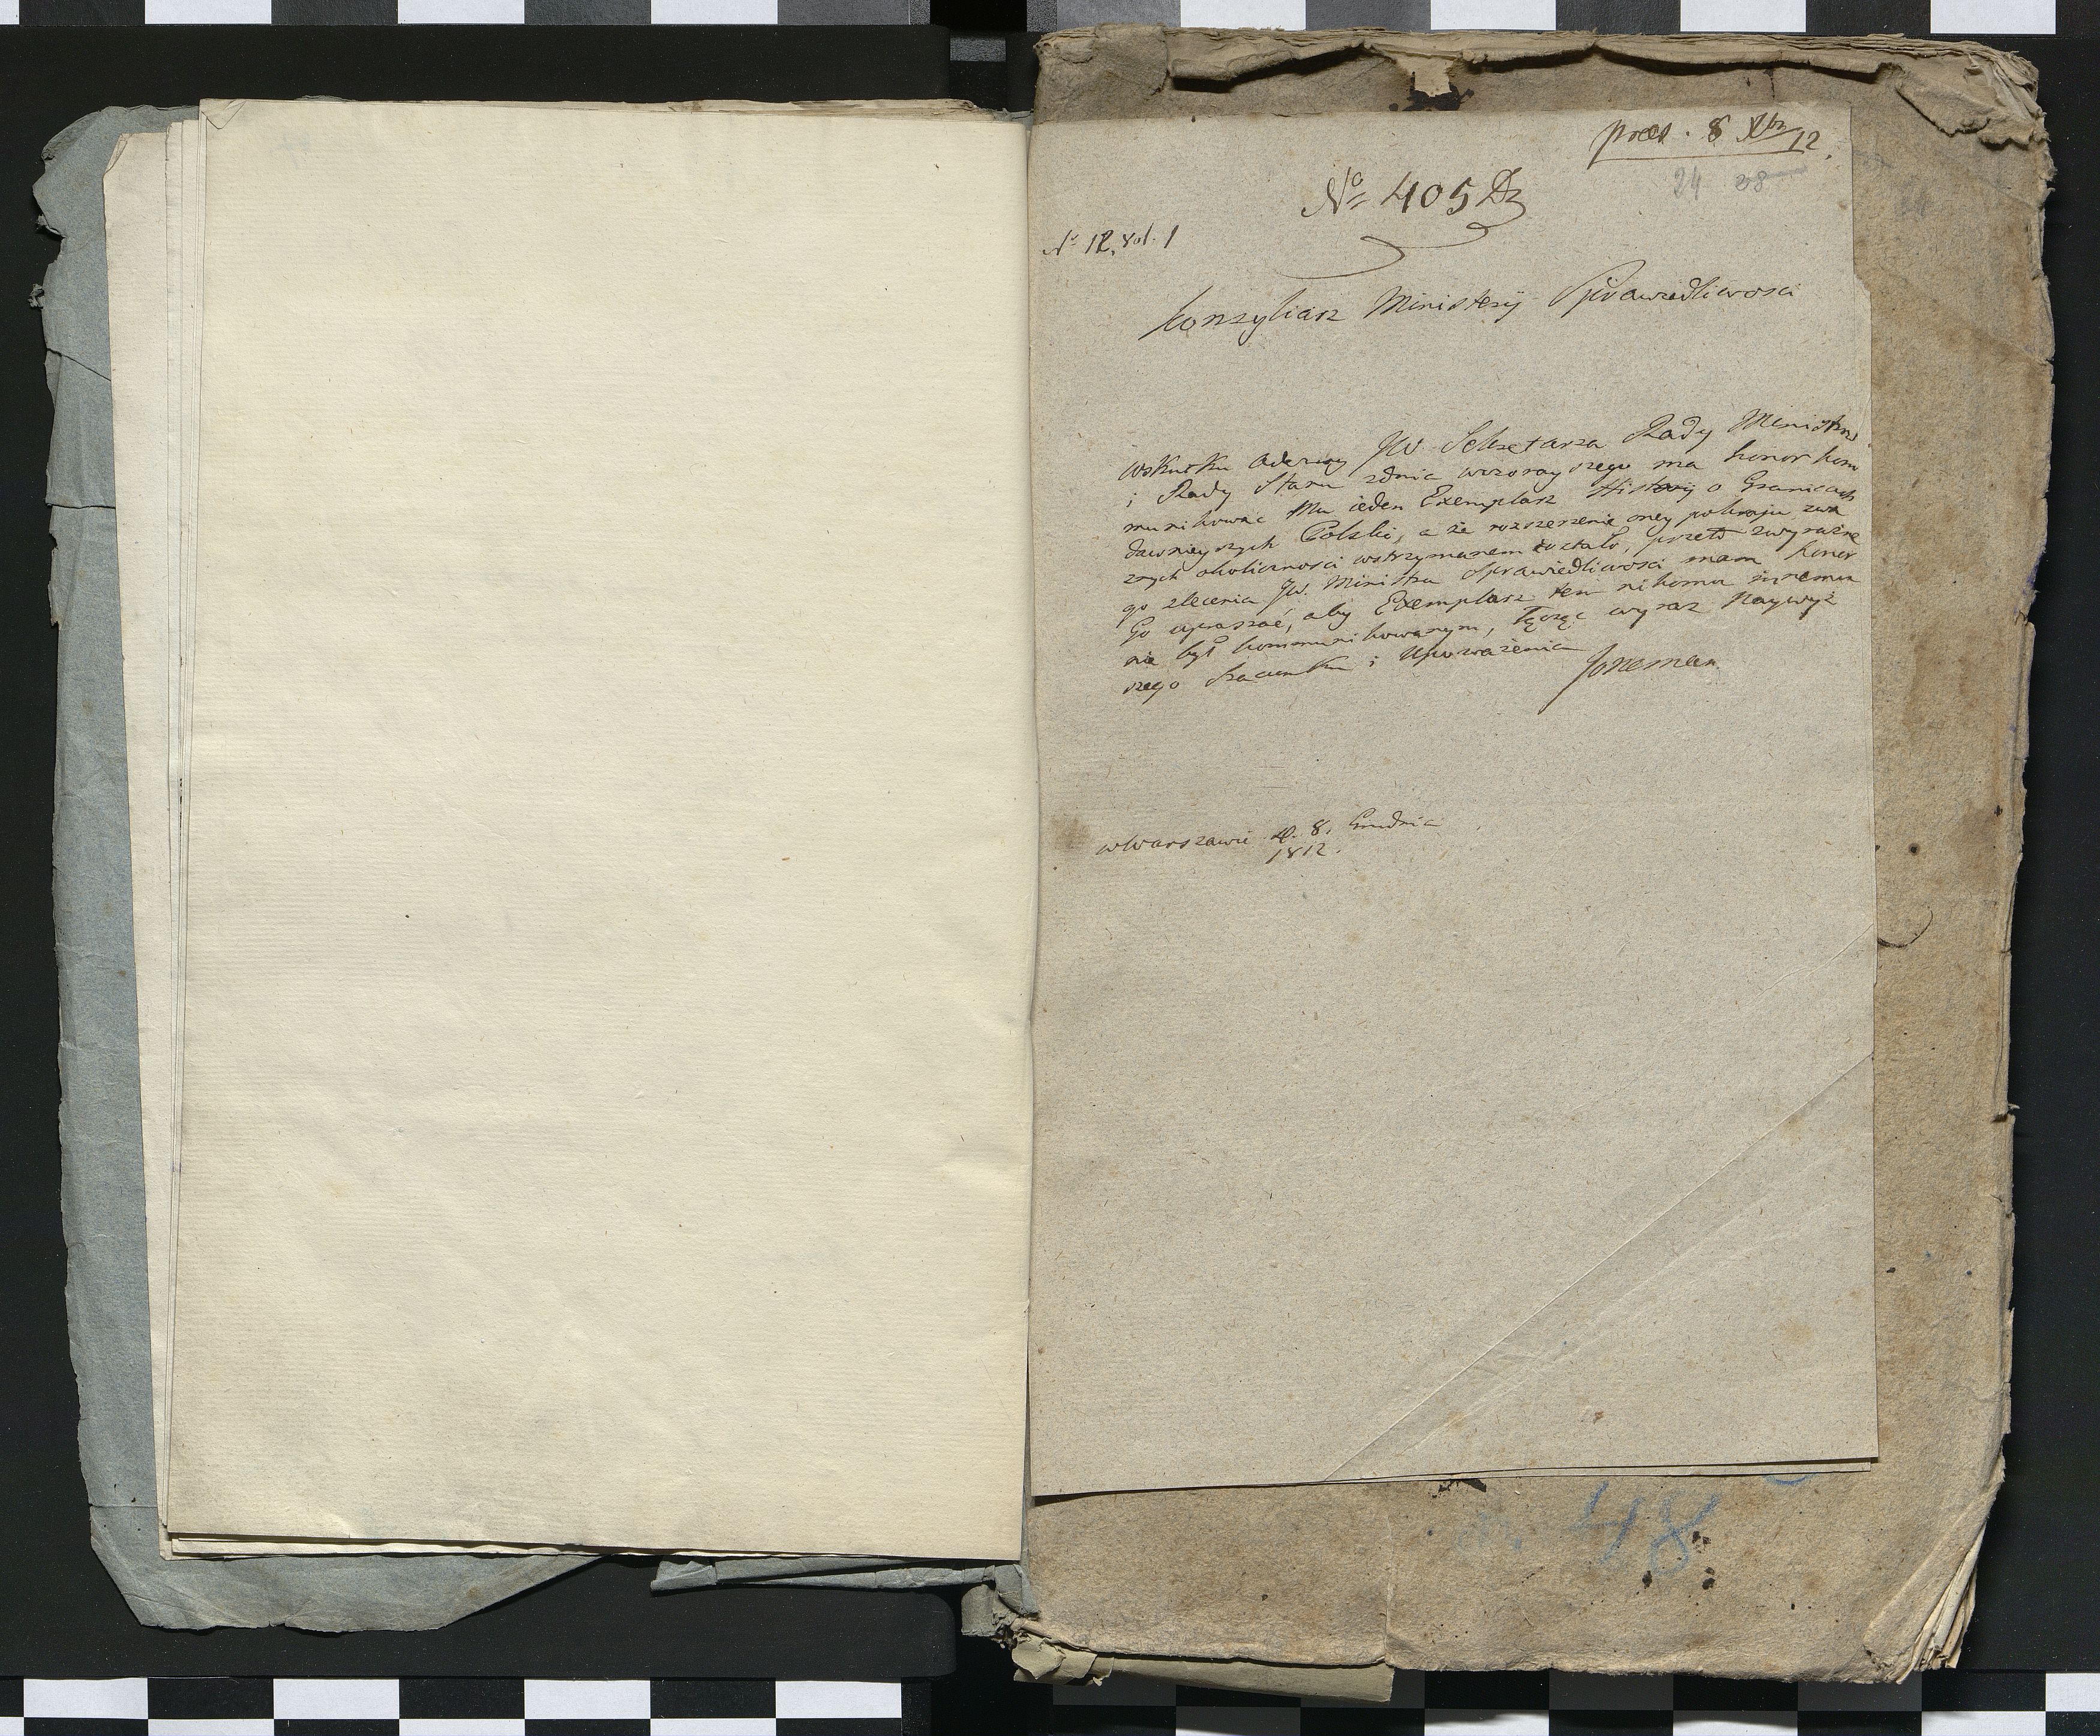 praes. 8 Xbr 12.
24 38
No 405 Dz
No 12. vol. 1
Konzyliarz Ministerij Sprawiedliwosci
Wskutku Odezwy JW Sekretarza Rady Ministrow
i Rady Stanu zdnia wczorayszego ma honor kom
munikować Mu ieden Exemplarz Historij o Granicach
dawnieyszych Polski, a że rozszerzenie oney pokraju zwa
znych okoliczności wstrzymanem zostało, przeto zwyraźne
go zlecenia JW. Ministra Sprawiedliwosci mam honor
Go upraszać, aby Exemplarz ten nikomu innemu
nie był kommunikowanym, łącząc wyraz Naywyż
szego Szacunku i Upoważenia
wWarszawie d. 8. Grudnia
1812.
48